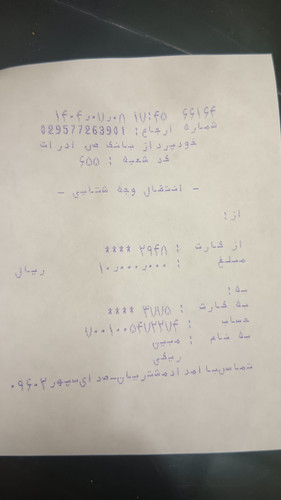 ۱۴۰۴٫۰۷٫۰۸ ۱۷:۴۵ ۶۶۱۶۴
شماره ارجاع: 029577263901
خودپرداز بانک ص ادرات
کد شعبه : ۶۵۵
- انتقال وجه شتابی -
از:
از کارت : ۲۹۴۸ ****
مبلغ : ۱۰٫۰۰۰٫۰۰۰ ریال
به:
به کارت : ۳۷۸۵ ****
حساب : ۷۰۰۱۰۰۵۴۷۲۲۷۴
به نام : مبین
ریگی
تماس با امداد مشتریان-صدای سپهر ۰۹۶۰۲